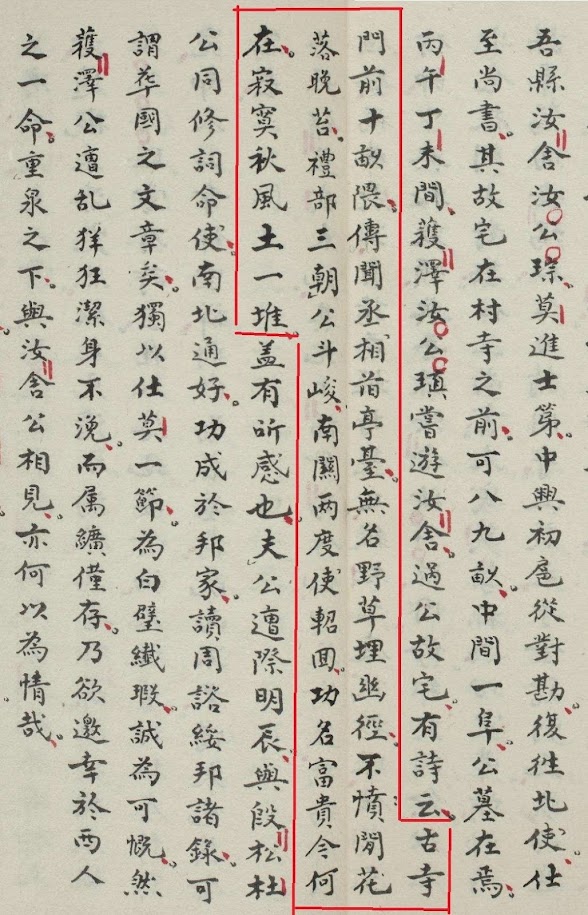 吾縣汝舍汝公琮莫進士第中興初扈從對勘復往北使仕
至尚書其故宅在村寺之前可八九畝中間一阜公墓在焉
丙午丁未間蒦澤汝公瑱嘗遊汝舍過公故宅有詩云古寺
門前十畝隈傳聞丞相首亭臺無名野草埋幽徑不憤閒花
落晚苔禮部三朝公斗峻南關两度使軺囬功名富貴今何
在寂寞秋風土一堆盖有所感也夫公遭際明辰與段松杜
公同修詞命使南北通好功成於邦家讀周諮綏邦諸錄可
謂華國之文章矣獨以仕莫一節為白璧纎瑕誠為可慨然
蒦澤公遭乱徉狂潔身不浼而属纊僅存乃欲邀幸於西人
之一命重泉之下與汝舍公相見亦何以為情哉